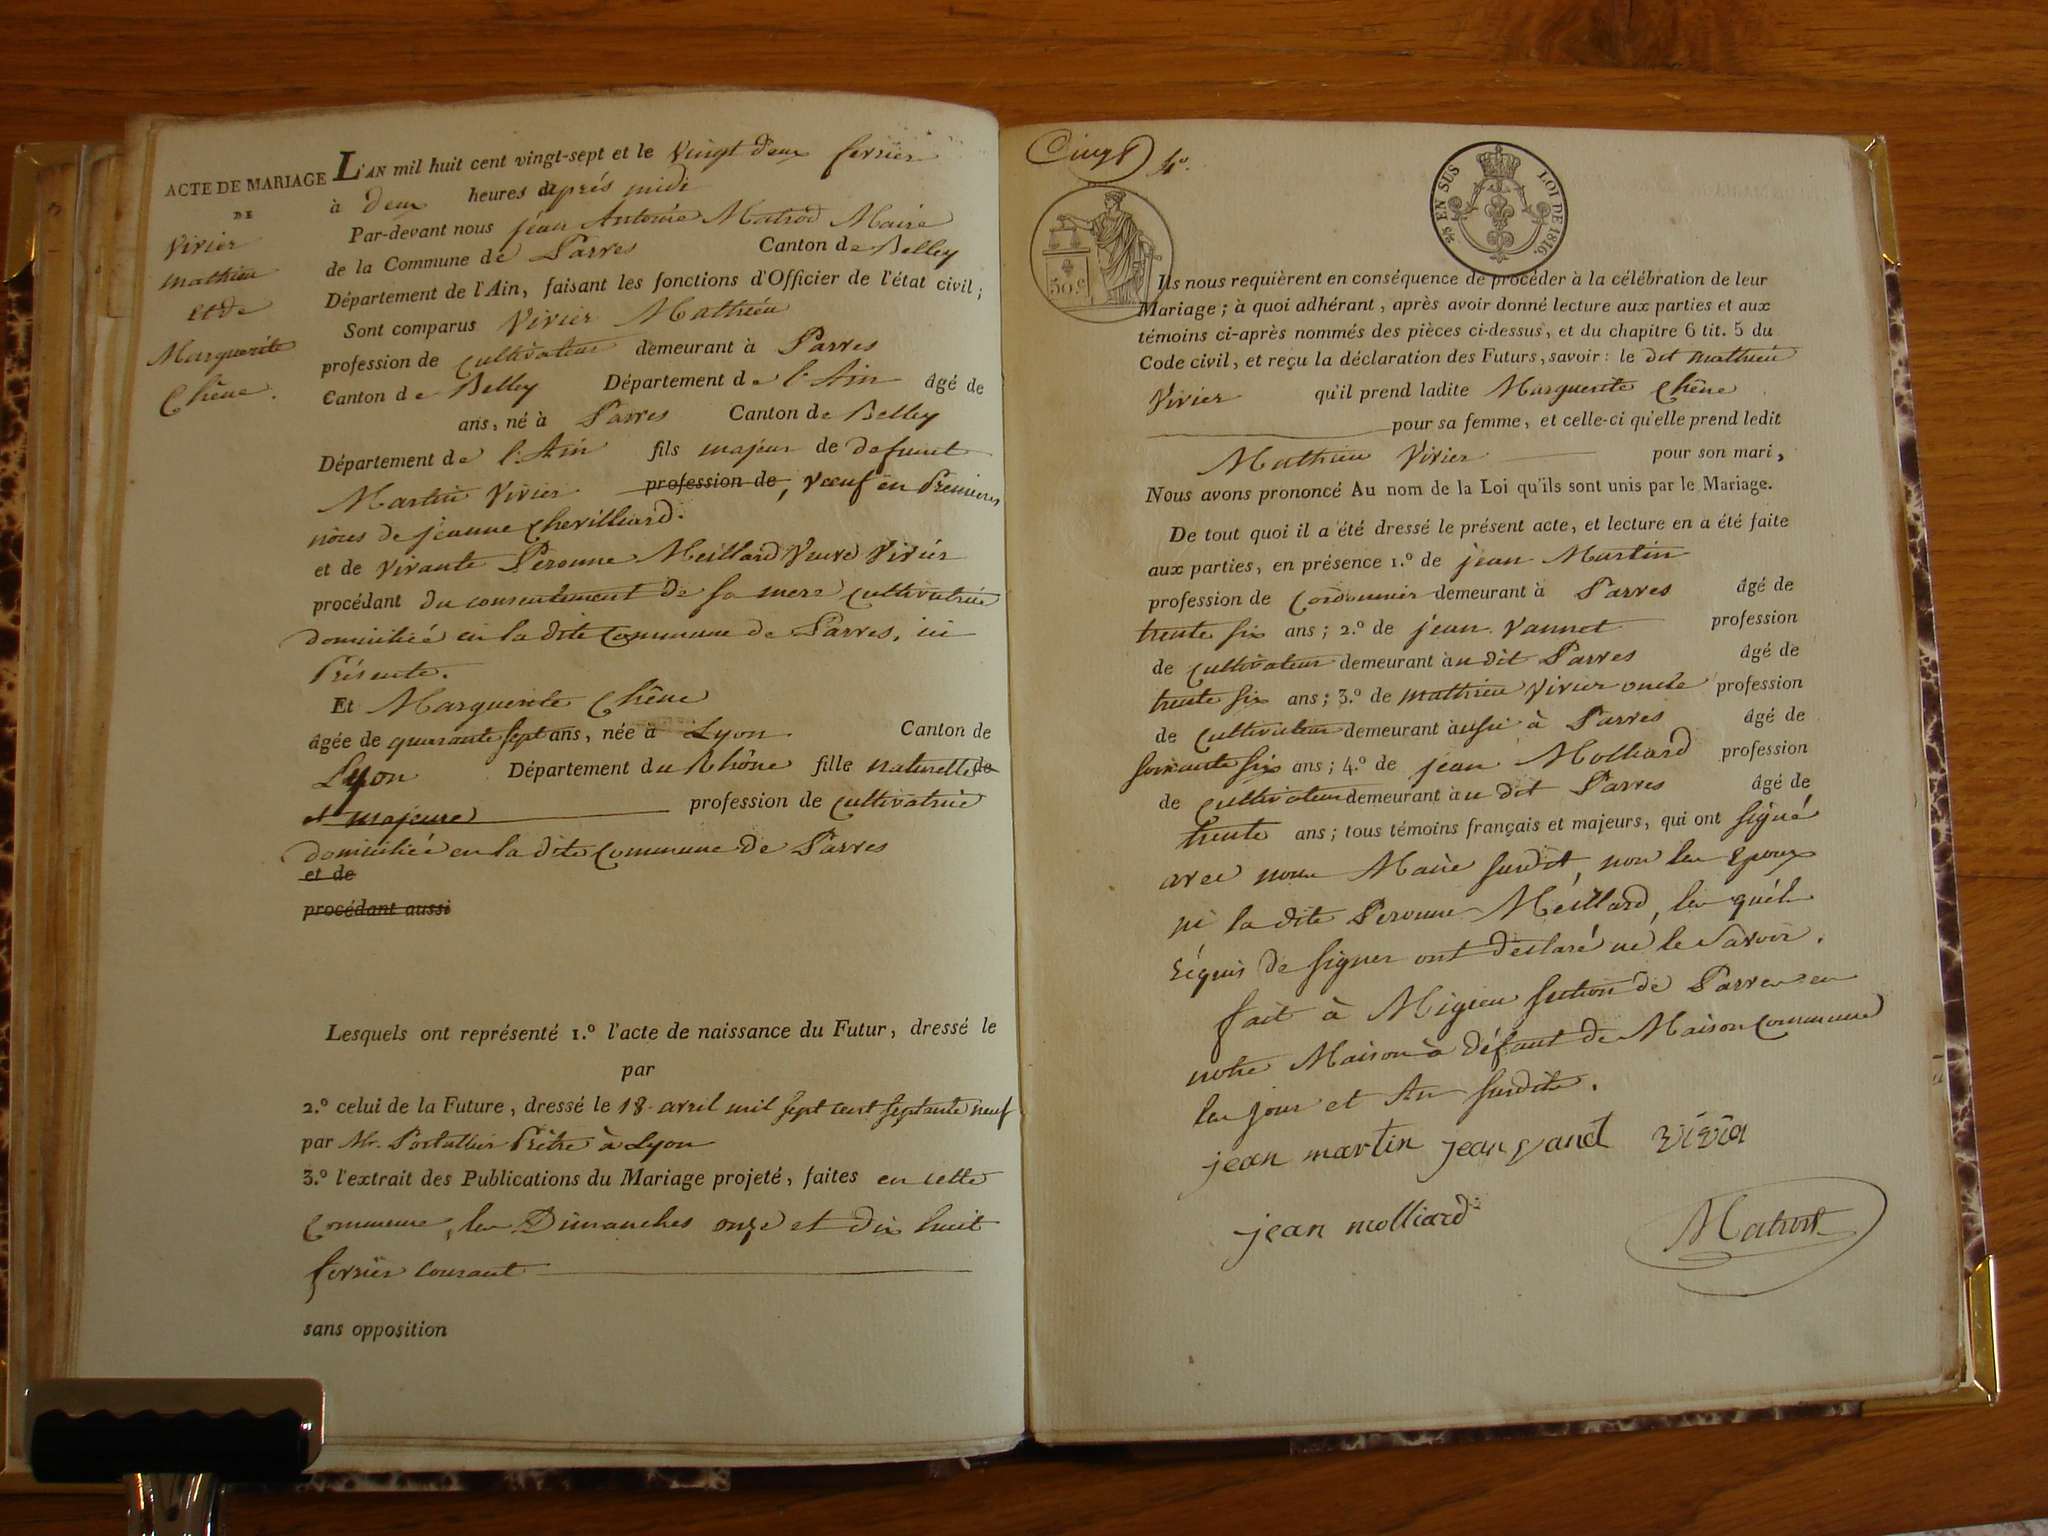 ACTE DE MARIAGE
DE
Vivier
Mathieu
et de
Marguerite
Chêne.
L'AN mil huit cent vingt-sept et le vingt deux fevrier
à deux heures après midi
Par-devant nous jean Antoine Matrod Maire
de la Commune de Parves Canton de Belley
Département de l'Ain, faisant les fonctions d'Officier de l'état civil;
Sont comparus Vivier Mathieu
profession de Cultivateur demeurant à Parves
Canton de Belley Département de l'Ain âgé de
ans, né à Parves Canton de Belley
Département de l'Ain fils majeur de defunt
Martin Vivier profession de, Vœuf en Premieres
nôces de jeanne Chevilliard.
et de vivante Peronne Meilland Veuve Vivier
procédant du consentement de sa mere cultivatrice
domiciliée en la dite Commune de Parves, ici
Présente.
Et Marguerite Chêne
âgée de quarante sept ans, née à Lyon Canton de
Lyon Département du Rhône fille naturelle de
et majeure profession de cultivatrice
domiciliée en la dite Commune de Parves
et de
procédant aussi
Lesquels ont représenté 1.º l'acte de naissance du Futur, dressé le
par
2.º celui de la Future, dressé le 18 avril mil sept cent septante neuf
par Mr. Portallier Prêtre à Lyon
3.º l'extrait des Publications du Mariage projeté, faites en cette
Commune, les Dimanches onze et dix huit
fevrier courant
sans opposition
Cinq f.º
50 c
25 EN SUS LOI DE 1816.
Ils nous requièrent en conséquence de procéder à la célébration de leur
Mariage; à quoi adhérant, après avoir donné lecture aux parties et aux
témoins ci-après nommés des pièces ci-dessus, et du chapitre 6 tit. 5 du
Code civil, et reçu la déclaration des Futurs, savoir: le dit Mathieu
Vivier qu'il prend ladite Marguerite Chêne
pour sa femme, et celle-ci qu'elle prend ledit
Mathieu Vivier pour son mari,
Nous avons prononcé Au nom de la Loi qu'ils sont unis par le Mariage.
De tout quoi il a été dressé le présent acte, et lecture en a été faite
aux parties, en présence 1.º de jean Martin
profession de Cordonnier demeurant à Parves âgé de
trente six ans; 2.º de jean Vannet profession
de Cultivateur demeurant au dit Parves âgé de
trente six ans; 3.º de Mathieu Vivier oncle profession
de Cultivateur demeurant aussi à Parves âgé de
soixante six ans; 4.º de jean Molliard profession
de Cultivateur demeurant au dit Parves âgé de
trente ans; tous témoins français et majeurs, qui ont signé
avec nous Maire susdit, non les Epoux
ni la dite Peronne Meilland, les quels
réquis de signer ont declaré ne le savoir.
fait à Migieu section de Parves en
notre Maison à défaut de Maison Commune
les jour et An susdits.
jean martin jean vanet vivier
jean molliard
Matrod